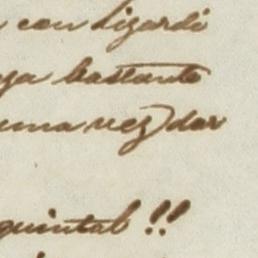 con Lizardi
ya bastante
una vez) dar
quintal!!